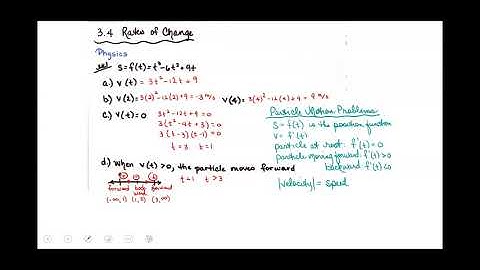 3.4 Rates of Change
Physics
ex1 s=f(t)=t³-6t²+9t
a.) v(t) = 3t²-12t+9
b) v(2)=3(2)²-12(2)+9=-3 m/s v(4)=3(4)²-12(4)+9 = 9 m/s
c) v(t)=0 3t²-12t+9=0
3(t²-4t+3)=0
3(t-3)(t-1)=0
t=3 t=1
Particle Motion Problems
s=f(t) is the position function
v=f'(t)
particle at rest: f'(t)=0
particle moving forward: f'(t)>0
backward: f'(t)<0
|velocity| = speed
d) When v(t)>0, the particle moves forward
t<1 t>3
forward back ward forward
(-∞,1) (1,3) (3,∞)